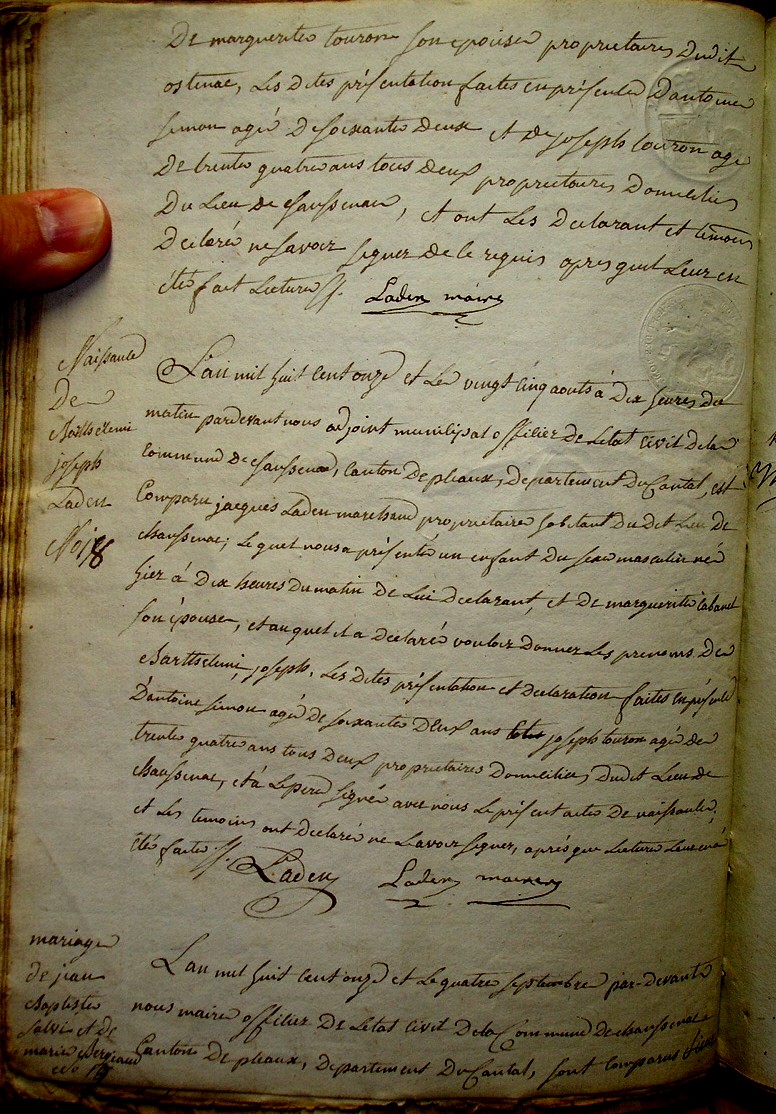 De marguerite touron son epouse proprietaires Dudit
ostenac, Les Dites présentation faites en présence D'antoine
simon agé De soixante deux et de joseph touron agé
De trente quatre ans tous Deux proprietaires Domiciliés
Du Lieu de chaussenac, et ont Les Declarant et temoins
Declaré ne savoir signer de ce requis apres quil Leur en
été fait Lecture
Laden maire
Naissance
De
Barthelemi
joseph
Laden
No 18
L'an mil huit cent onze et Le vingt cinq aouts à Dix heures du
matin pardevant nous adjoint municipal officier de Letat civil de la
Commune de chaussenac, Canton De pleaux, Departement Du Cantal, est
Comparu jacques Laden marchand proprietaire habitant Du dit Lieu de
chaussenac; Lequel nous a présenté un enfant Du sexe masculin né
hier à Dix heures Du matin De Lui Declarant, et De marguerite
son épouse, et auquel il a Déclaré vouloir Donner Les prenoms De
Barthelemi, joseph. Les Dites présentation et Declaration faites en présence
D'antoine simon agé De soixante Deux ans joseph touron agé de
trente quatre ans tous Deux proprietaires Domiciliés Dudit Lieu de
chaussenac, et à Le pere signé avec nous Le présent acte De naissance;
et Les temoins ont Declaré ne savoir signer, aprés que Lecture Leur en a
été faite
Laden Laden maire
mariage
de jean
Baptiste
salvi et De
marie Bergeaud
L'an mil huit cent onze et Le quatre septembre par-devant
nous maire officier De Letat civil De la Commune De chaussenac
Canton De pleaux, Departement Du Cantal, sont Comparus